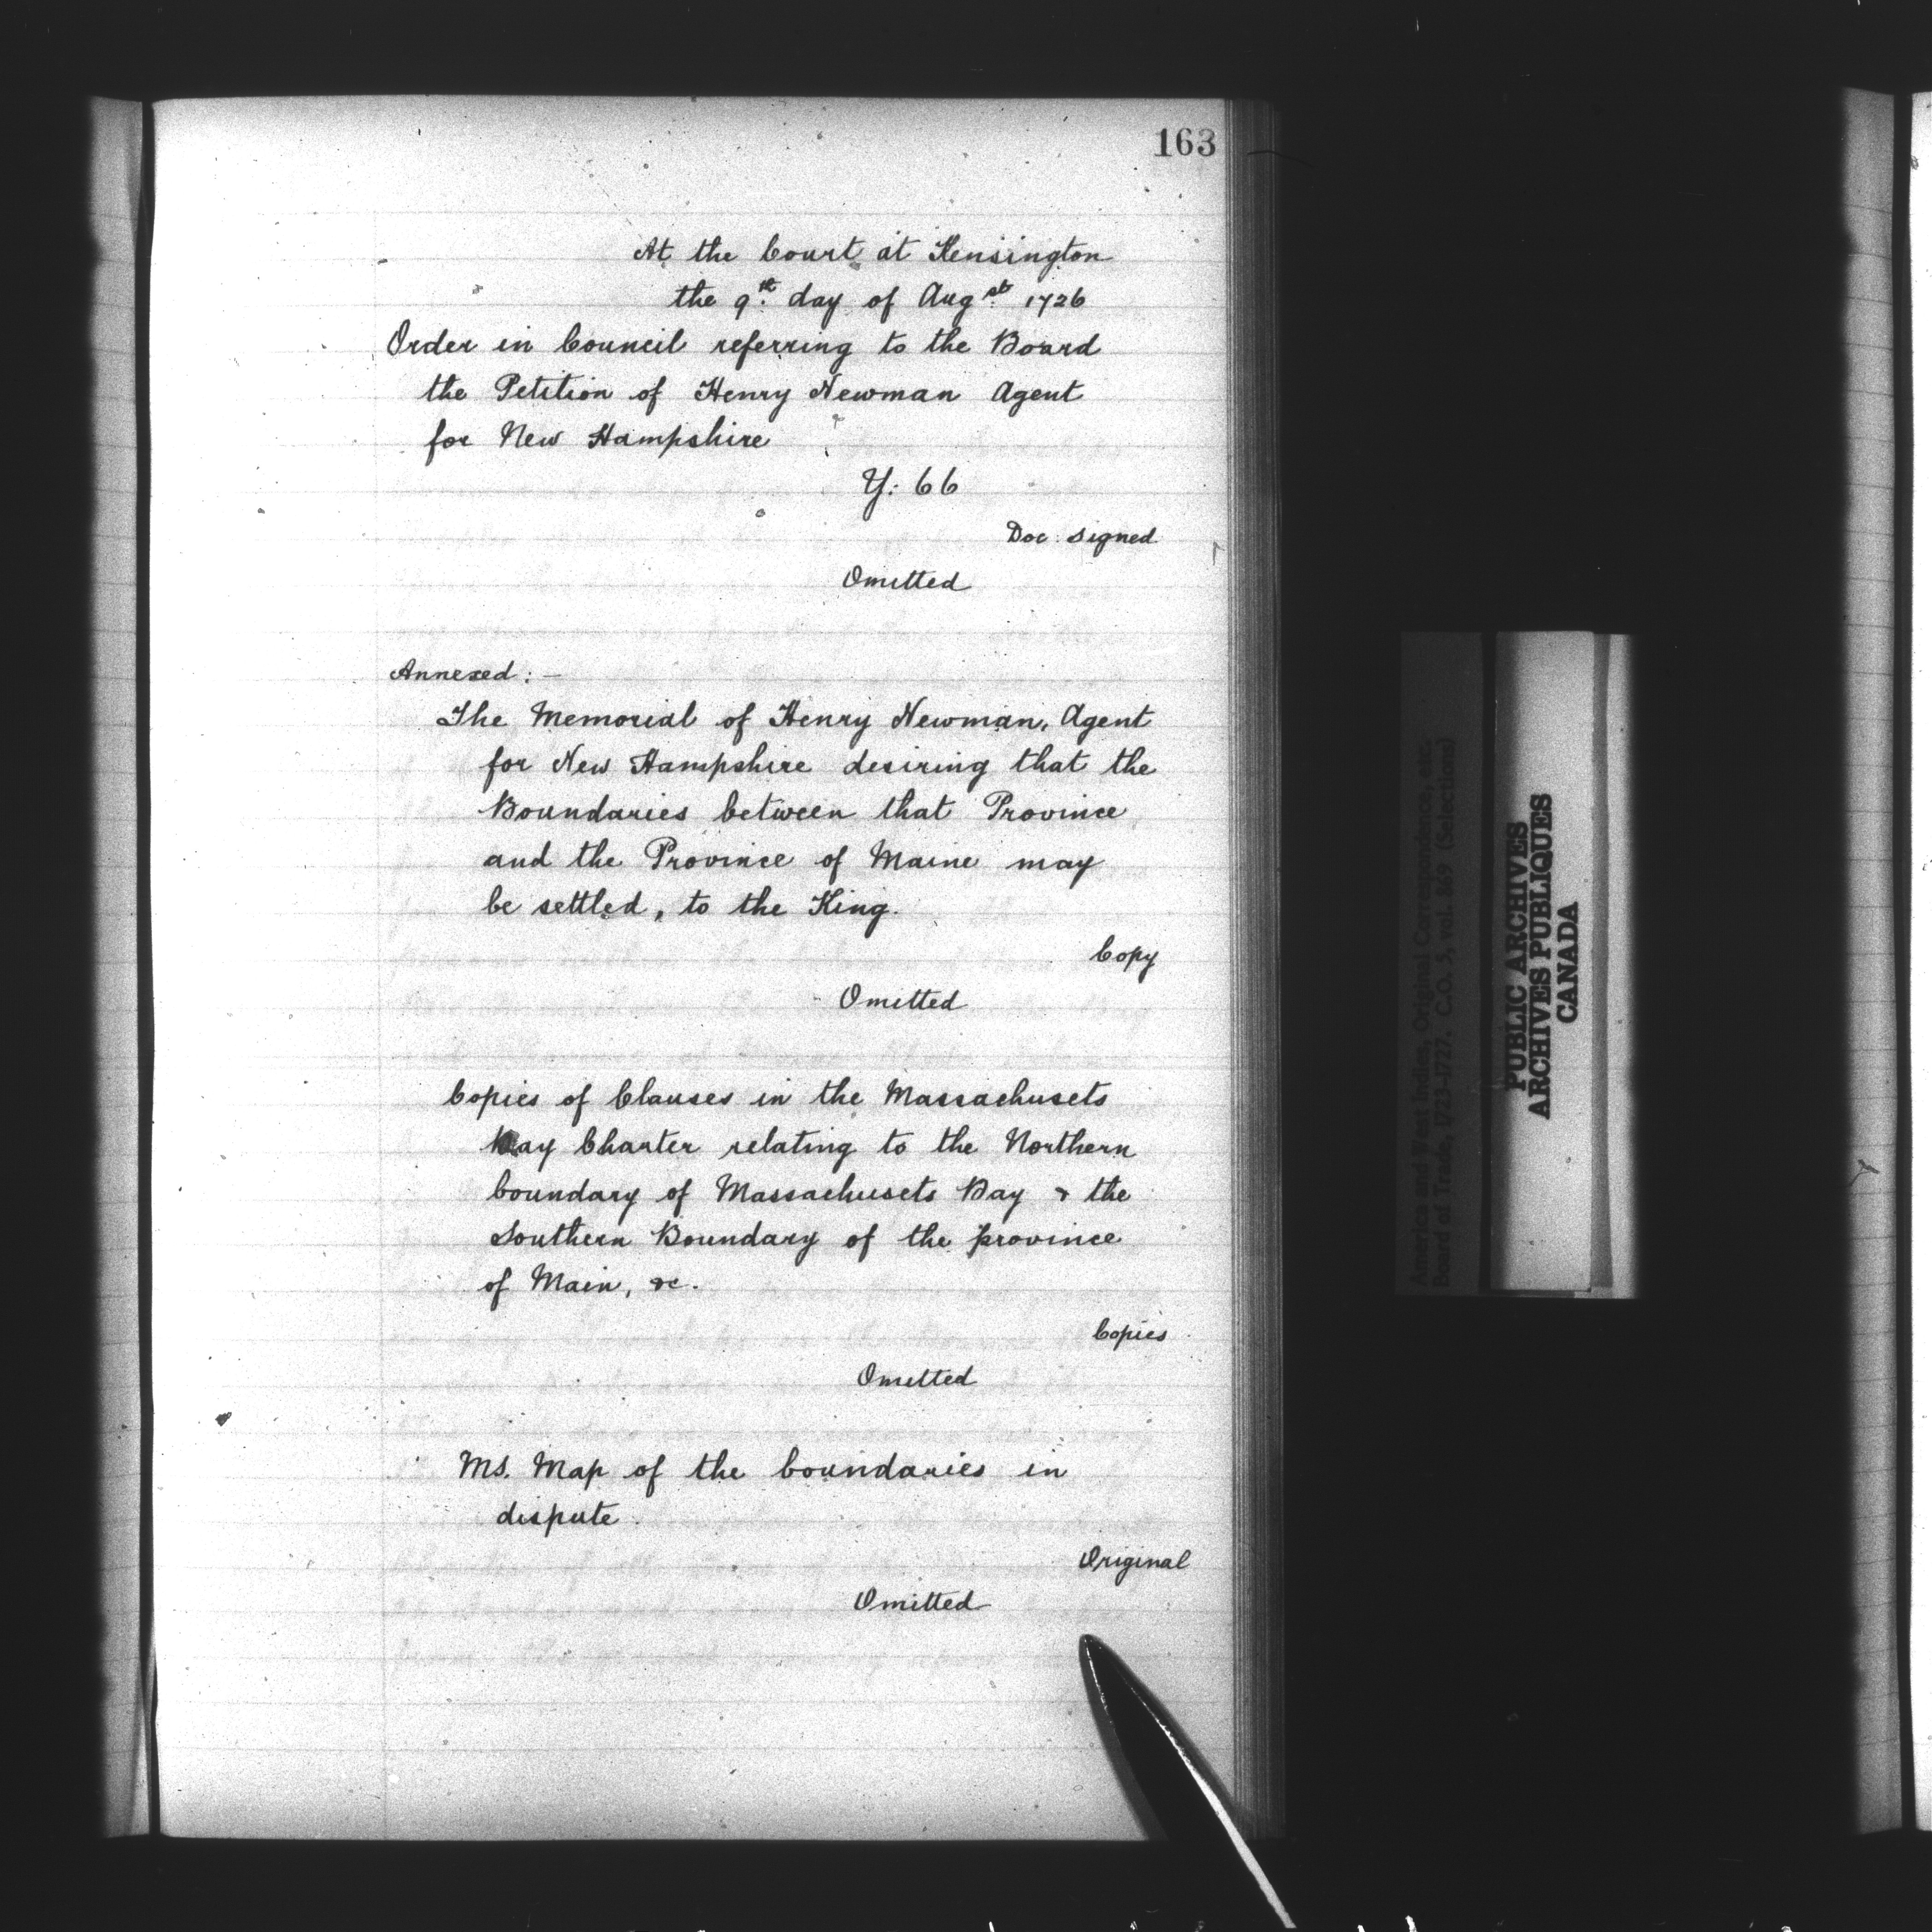 163
At the Court at Kensington
the 9th day of Augst 1726
Order in Council referring to the Board
the Petition of Henry Newman Agent
for New Hampshire
Y: 66
Doc. signed
Omitted
Annexed: —
The Memorial of Henry Newman, Agent
for New Hampshire desiring that the
Boundaries between that Province
and the Province of Maine may
be settled, to the King.
Copy
Omitted
Copies of Clauses in the Massachusets
Bay Charter relating to the Northern
boundary of Massachusets Bay & the
Southern Boundary of the province
of Main, &c.
Copies
Omitted
MS. Map of the boundaries in
dispute.
Original
Omitted
America and West Indies, Original Correspondence, etc.
Board of Trade, 1723-1727. C.O. 5, vol. 869 (Selections)
PUBLIC ARCHIVES
ARCHIVES PUBLIQUES
CANADA